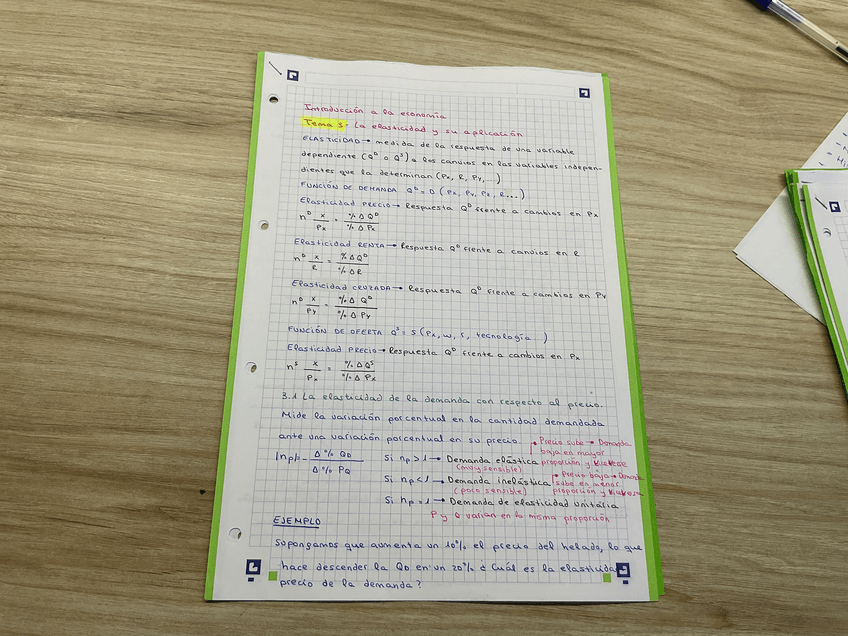 Introducción a la economía
Tema 3- La elasticidad y su aplicación
ELASTICIDAD → medida de la respuesta de una variable
dependiente (Qᴰ o Qˢ) a los canvios en las variables indepen-
dientes que la determinan (Px, R, Py,...)
FUNCIÓN DE DEMANDA Qᴰ = D (Px, Py, Pz, R...)
Elasticidad PRECIO → Respuesta Qᴰ frente a cambios en Px
nᴰ x/Px = %Δ Qᴰ / %Δ Px
Elasticidad RENTA → Respuesta Qᴰ frente a canvios en R
nᴰ x/R = %Δ Qᴰ / %Δ R
Elasticidad CRUZADA → Respuesta Qᴰ frente a cambios en Py
nᴰ x/Py = %Δ Qᴰ / %Δ Py
FUNCIÓN DE OFERTA Qˢ = S (Px, w, r, tecnología...)
Elasticidad PRECIO → Respuesta Qᴰ frente a cambios en Px
nˢ x/Px = %Δ Qˢ / %Δ Px
3.1 La elasticidad de la demanda con respecto al precio.
Mide la variación porcentual en la cantidad demandada
ante una variación porcentual en su precio.
|np| = - Δ% QD / Δ% PQ
Si np > 1 → Demanda elástica
(muy sensible)
Precio sube → Demanda
baja en mayor
proporción y
Si np < 1 → Demanda inelástica
(poco sensible)
Precio baja → Demanda
sube en menor
proporción y
Si np = 1 → Demanda de elasticidad unitaria
P y Q varían en la misma proporción
EJEMPLO
Supongamos que aumenta un 10% el precio del helado, lo que
hace descender la QD en un 20% ¿Cuál es la elasticidad
precio de la demanda?